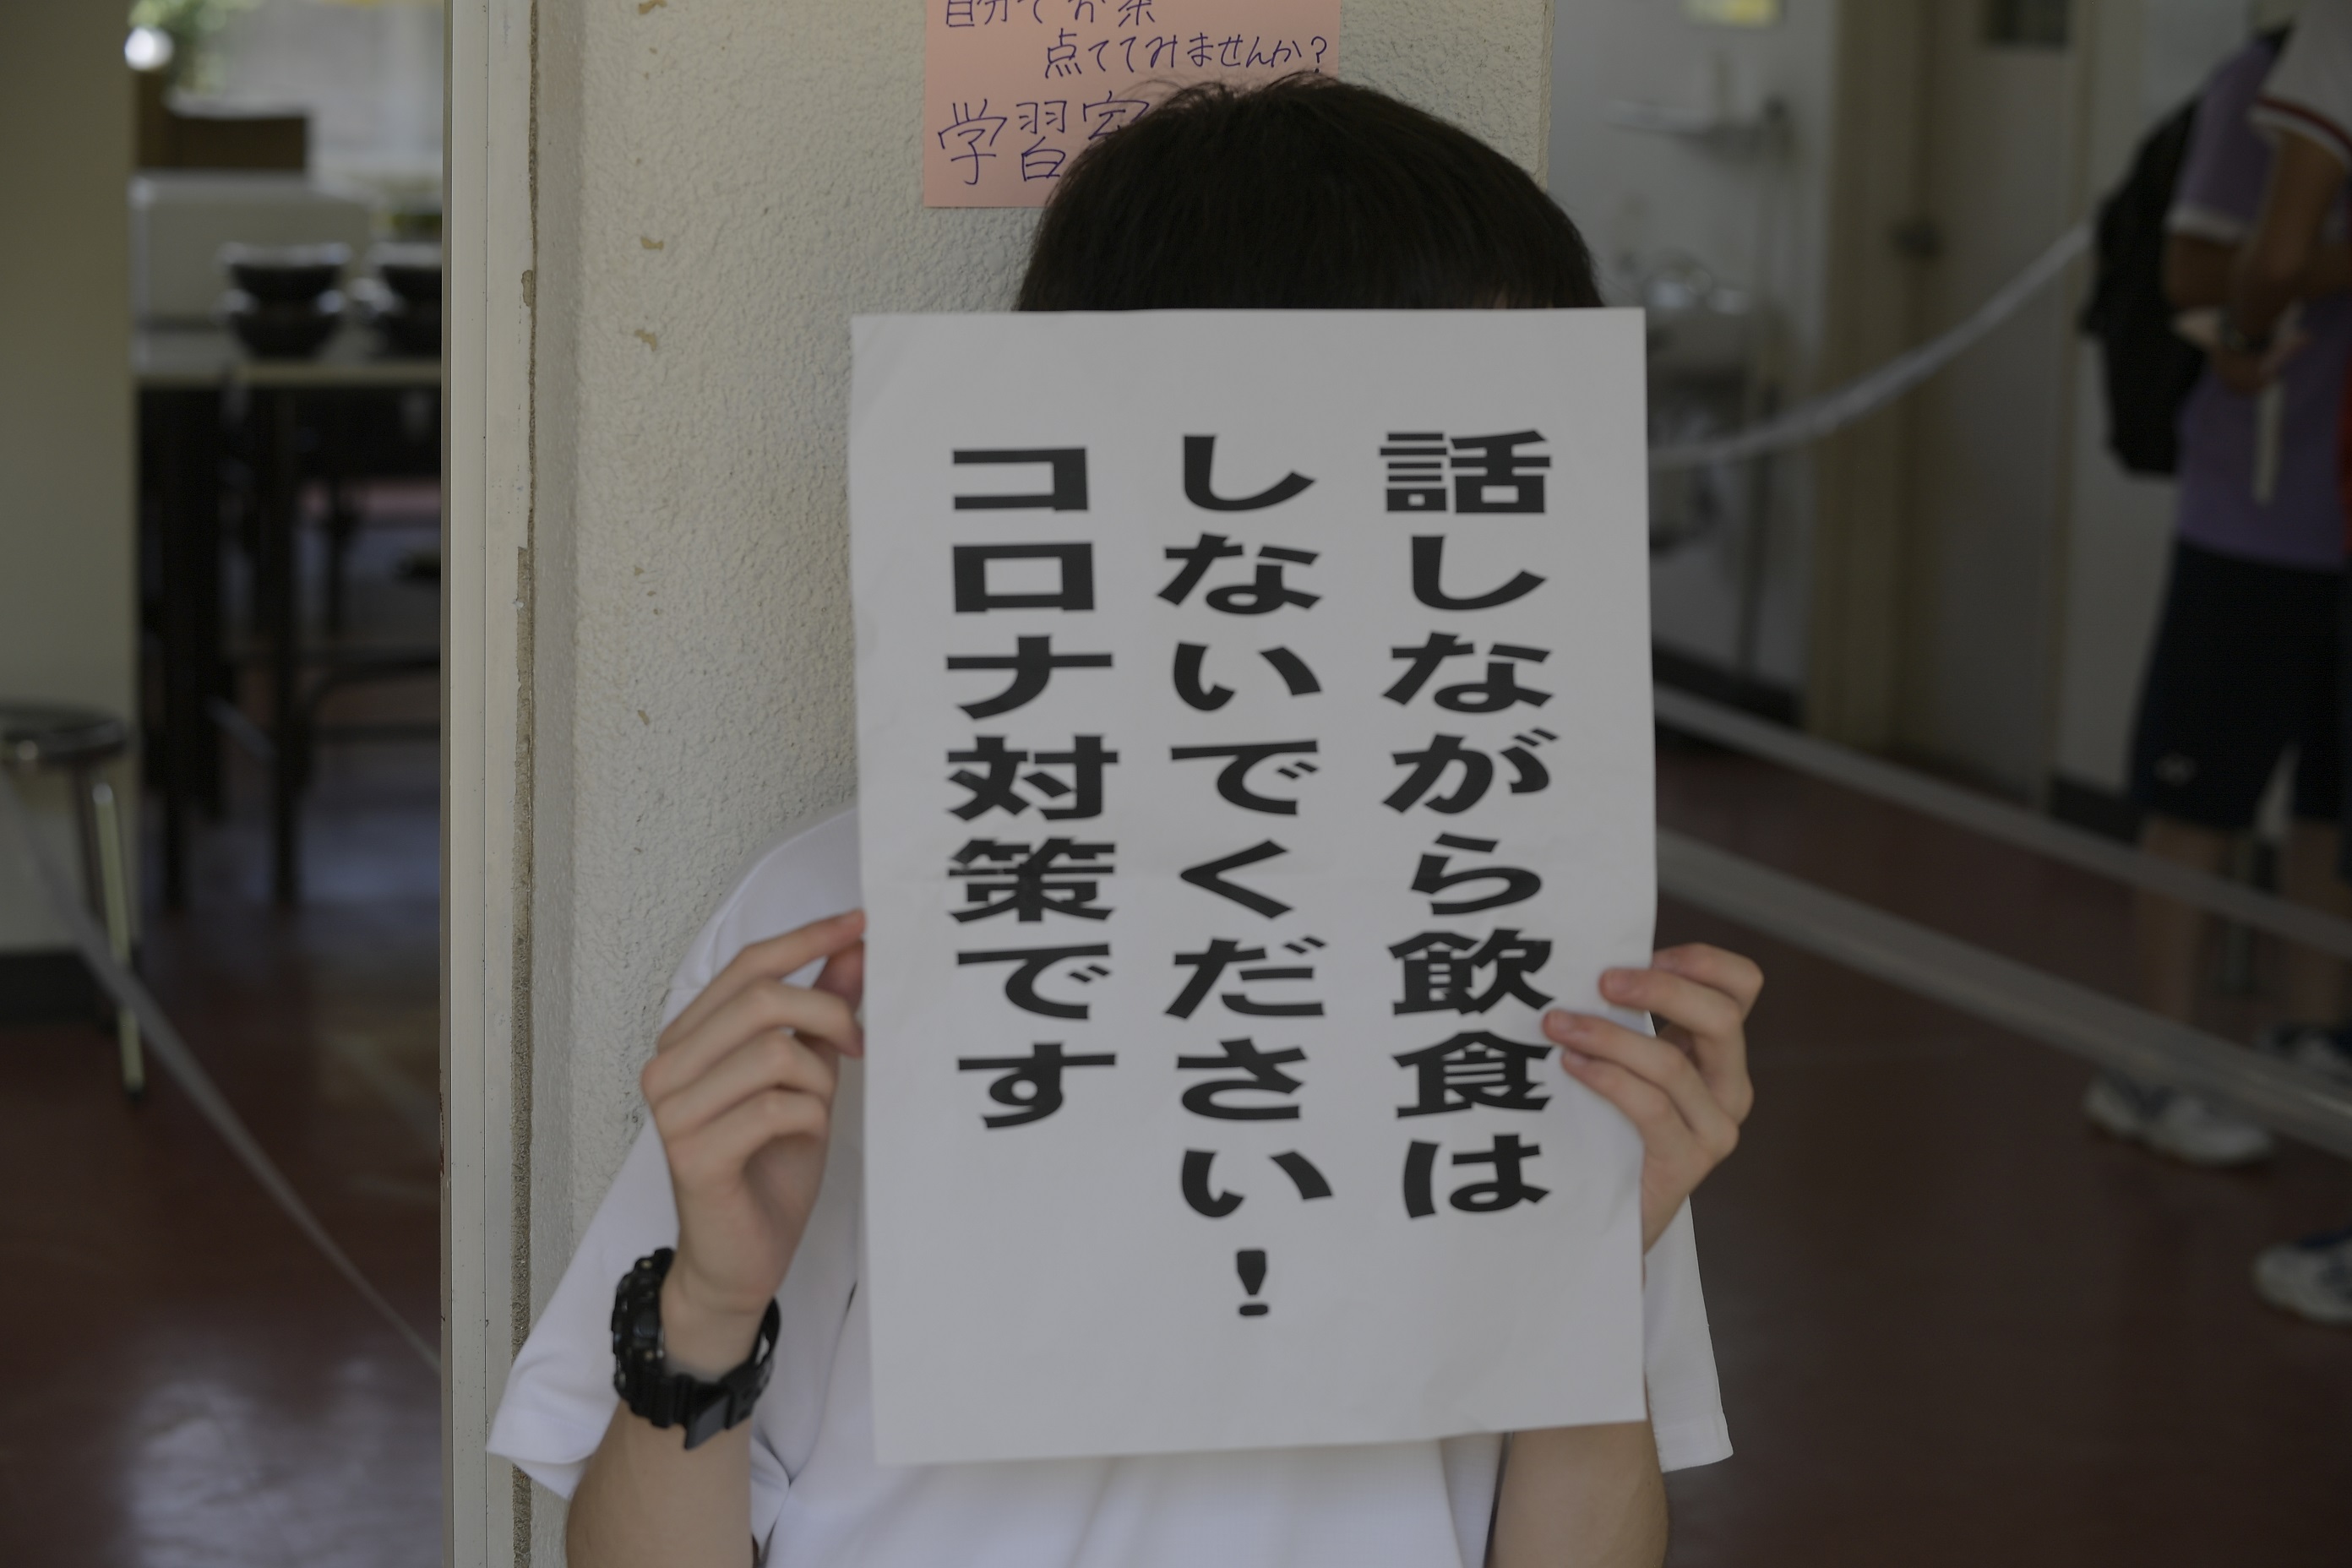 自分でお茶
点ててみませんか?
学習室
話しながら飲食は
しないでください!
コロナ対策です